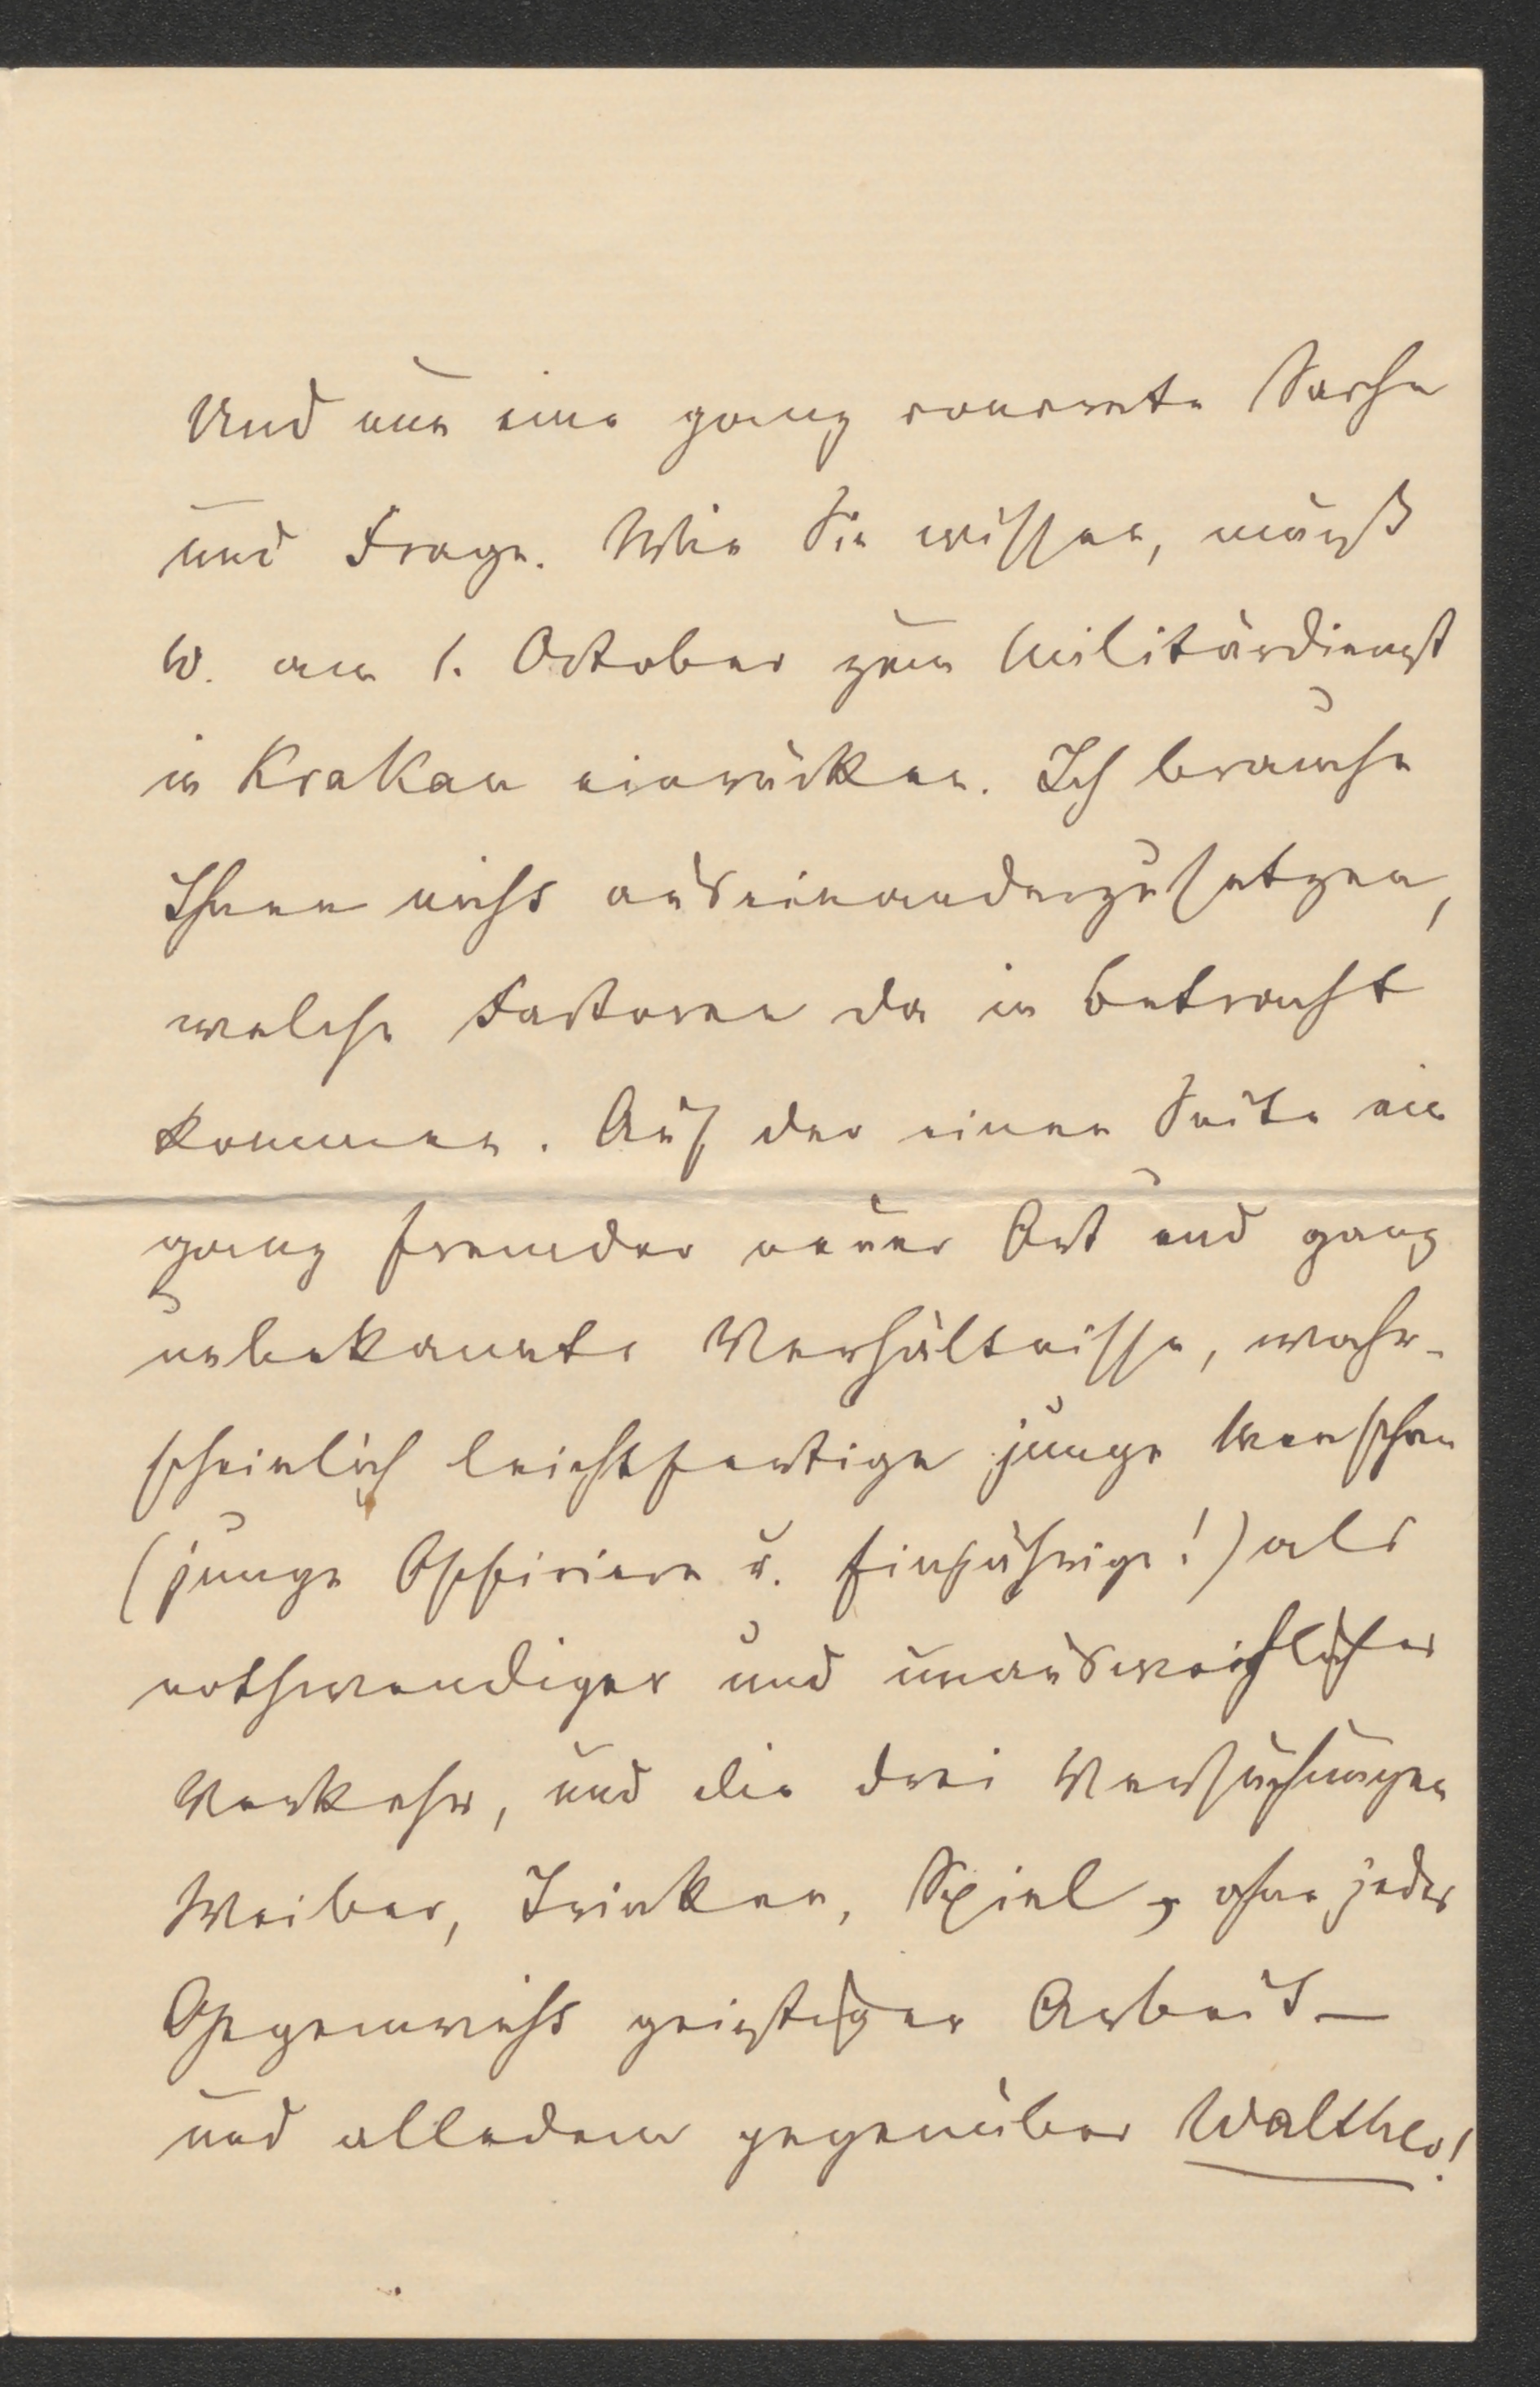 Und nun eine ganz concrete Sache
und Frage. Wie Sie wissen, muß
W. am 1. October zum Militärdienst
in Krakau einrücken. Ich brauche
Ihnen nicht auseinanderzusetzen,
welche Factoren da in Betracht
kommen. Auf der einen Seite ein
ganz fremder neuer Ort und ganz
unbekannte Verhältnisse, wahr-
scheinlich leichtfertige junge Menschen
(junge Officiere u. Einjährige!) als
nothwendiger und unausweichlicher
Verkehr, und die drei Versuchungen
Weiber, Trinken, Spiel, ohne jedes
Gegengewicht geistiger Arbeit –
und alledem gegenüber Walther!